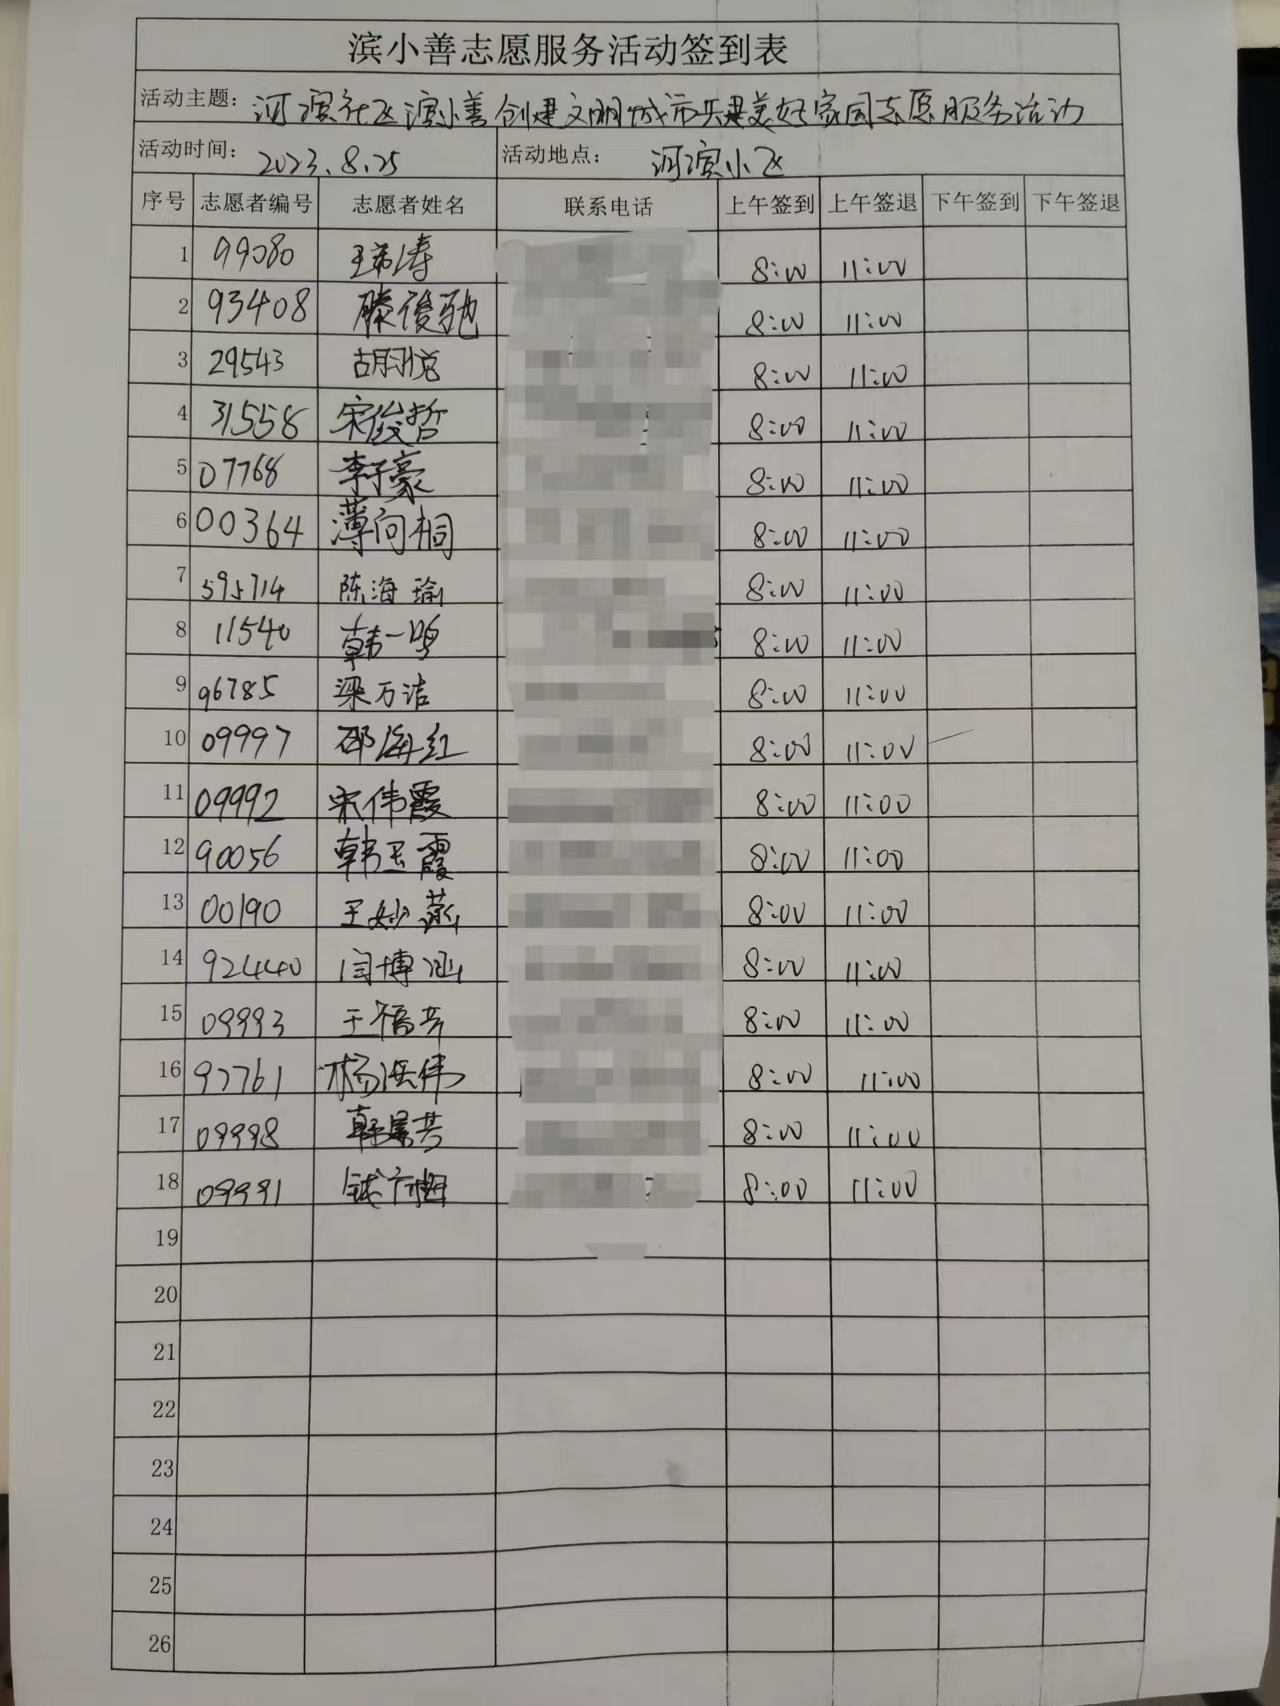 滨小善志愿服务活动签到表
活动主题：河滨社区滨小善创建文明城市共建美好家园志愿服务活动
活动时间：2023.8.25 活动地点：河滨小区
序号 志愿者编号 志愿者姓名 联系电话 上午签到 上午签退 下午签到 下午签退
1 99080 8:00 11:00
2 93408 滕俊驰 8:00 11:00
3 29543 胡悦 8:00 11:00
4 31558 宋俊哲 8:00 11:00
5 07768 李子豪 8:00 11:00
6 00364 薄向桐 8:00 11:00
7 595714 陈海瑜 8:00 11:00
8 11540 韩一鸣 8:00 11:00
9 96785 梁万洁 8:00 11:00
10 09997 邵海红 8:00 11:00
11 09992 宋伟霞 8:00 11:00
12 90056 韩玉霞 8:00 11:00
13 00190 王妙燕 8:00 11:00
14 92440 闫博涵 8:00 11:00
15 09993 王福芳 8:00 11:00
16 97761 杨洪伟 8:00 11:00
17 09998 8:00 11:00
18 09991 8:00 11:00
19
20
21
22
23
24
25
26